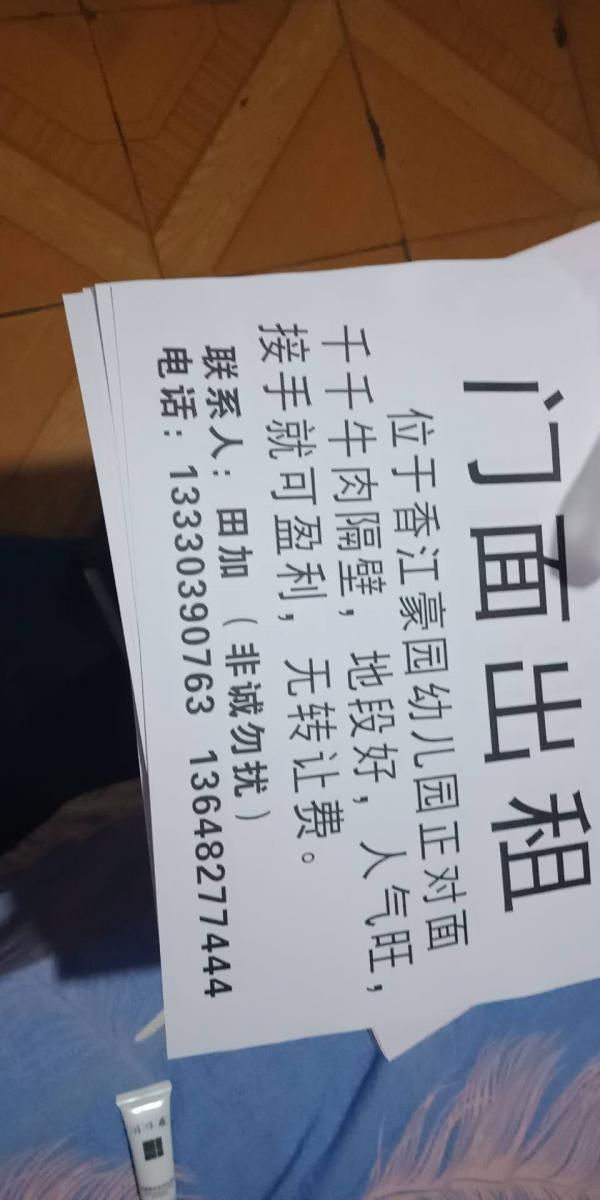 门面出租
位于香江豪园幼儿园正对面
千千牛肉隔壁，地段好，人气旺，
接手就可盈利，无转让费。
联系人：田加（非诚勿扰）
电话：13330390763 13648277444